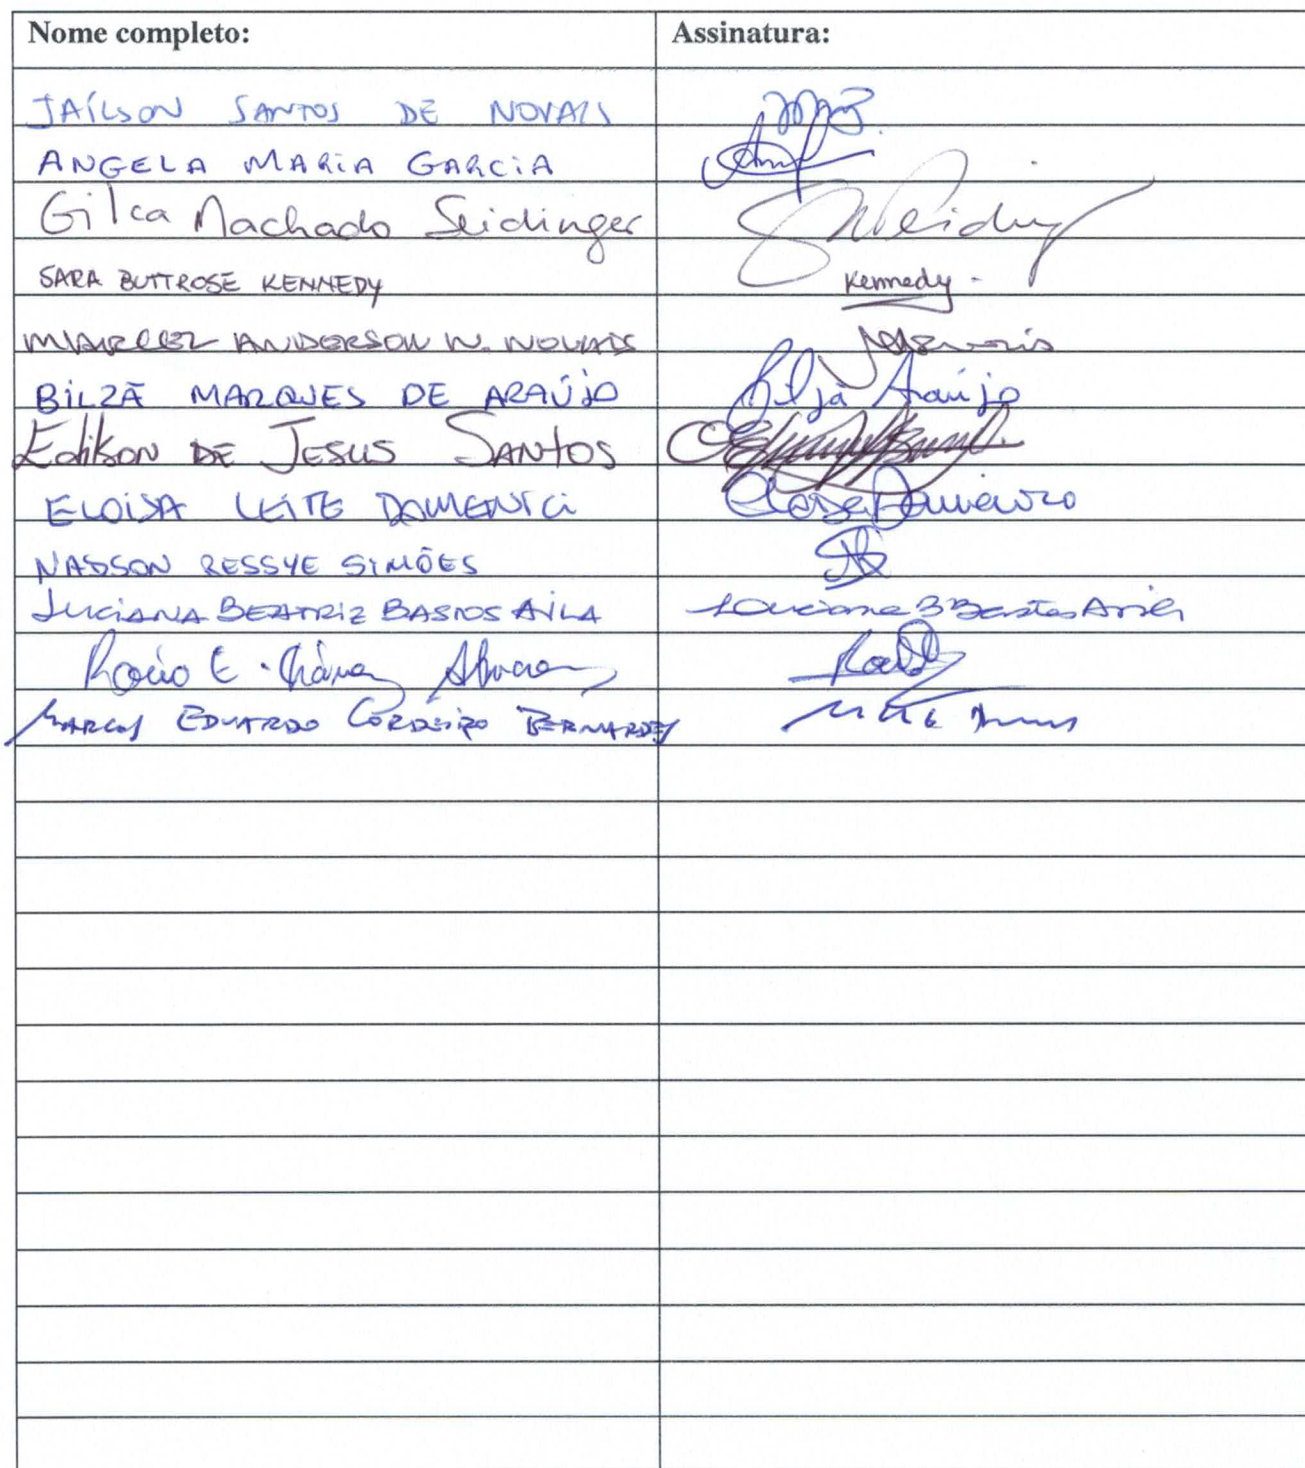 Nome completo: Assinatura:
JAÍLSON SANTOS DE NOVAIS
ANGELA MARIA GARCIA
Gilca Machado Seidinger
SARA BUTTROSE KENNEDY Kennedy
ANDERSON NOVAIS
BILZÃ MARQUES DE ARAÚJO Bilzã Araújo
Edilson DE JESUS SANTOS
ELOISA LEITE DOMENICI
NADSON RESSYE SIMÕES
LUCIANA BEATRIZ BASTOS ÁVILA Luciana B Bastos Ávila
Rocío E. Chávez
MARCOS EDUARDO CORDEIRO BERNARDES